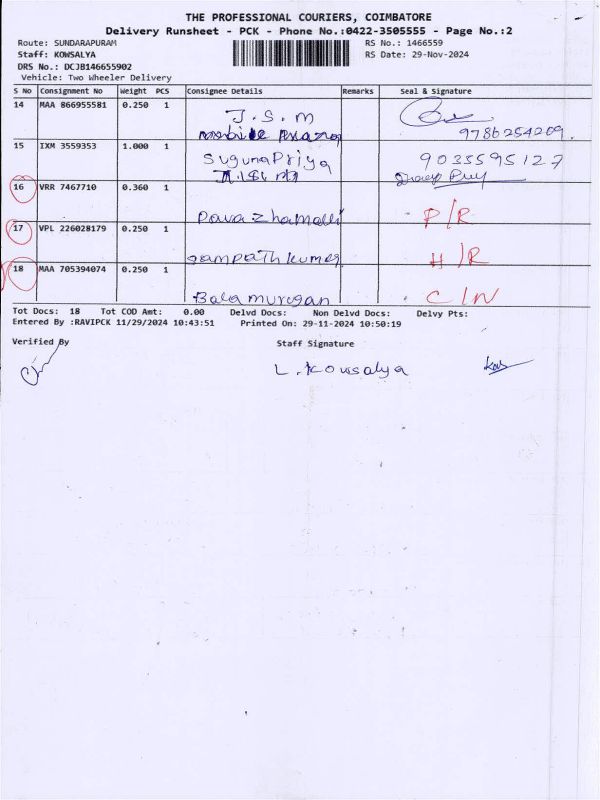 THE PROFESSIONAL COURIERS, COIMBATORE
Delivery Runsheet - PCK - Phone No.:0422-3505555 - Page No.:2
Route: SUNDARAPURAM RS No.: 1466559
Staff: KOWSALYA RS Date: 29-Nov-2024
DRS No.: DCJB146655902
Vehicle: Two Wheeler Delivery
S No Consignment No Weight PCS Consignee Details Remarks Seal & Signature
14 MAA 866955581 0.250 1 J.S.M
mobile 9786254209.
15 IXM 3559353 1.000 1 SugunaPriya 9035595127
16 VRR 7467710 0.360 1 P/R
17 VPL 226028179 0.250 1 Sampathkumar H/R
18 MAA 705394074 0.250 1 Balamurugan C/N
Tot Docs: 18 Tot COD Amt: 0.00 Delvd Docs: Non Delvd Docs: Delvy Pts:
Entered By :RAVIPCK 11/29/2024 10:43:51 Printed On: 29-11-2024 10:50:19
Verified By Staff Signature
L. Kowsalya